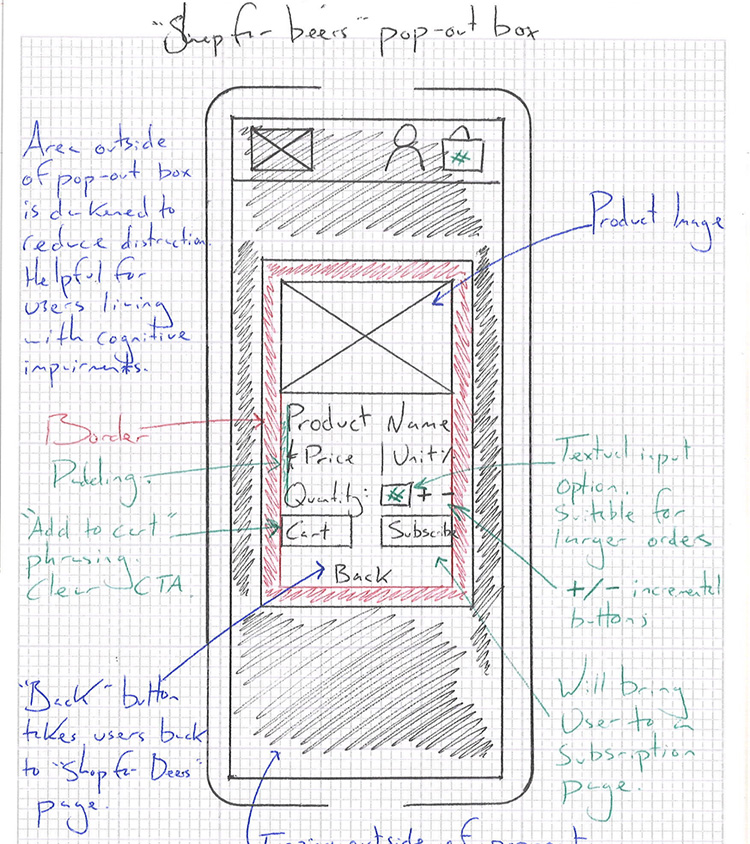 "Shop for beers" pop-out box
Area outside
of pop-out box
is darkened to
reduce distraction.
Helpful for
users living
with cognitive
impairments.
Product Image
#
Product Name
Border
Padding
Price | Unit
Textual input
option.
Suitable for
larger orders
Quantity: # + -
"Add to cart"
phrasing.
Clear CTA.
Cart
Subscribe
Back
+/- incremental
buttons
"Back" button
takes users back
to "Shop for Beers"
page.
Will bring
User to a
Subsription
page.
outside of